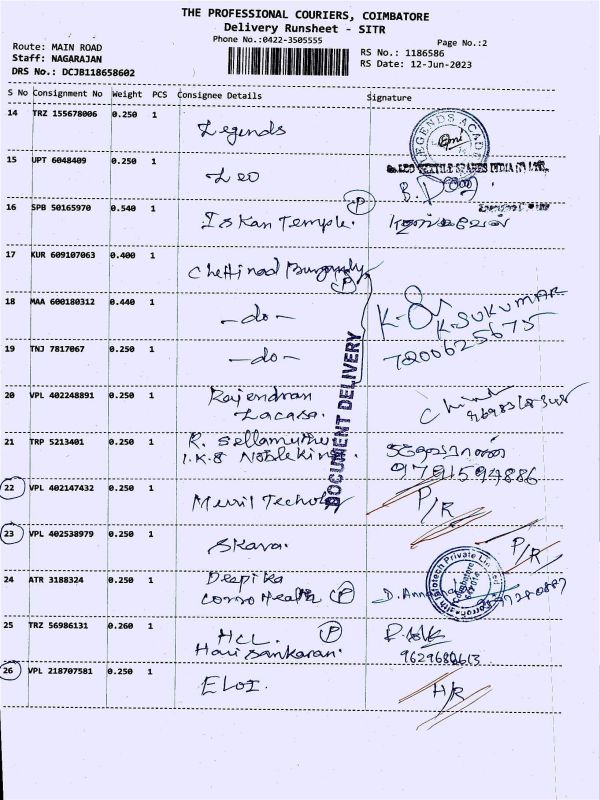 THE PROFESSIONAL COURIERS, COIMBATORE
Delivery Runsheet - SITR
Phone No.:0422-3505555
Page No.:2
Route: MAIN ROAD
Staff: NAGARAJAN
DRS No.: DCJB118658602
RS No.: 1186586
RS Date: 12-Jun-2023
S No Consignment No Weight PCS Consignee Details Signature
14 TRZ 155678006 0.250 1 Legends
LEGENDS ACAD
15 UPT 6048409 0.250 1 Leo
LEO TEXTILE SPARES INDIA (P) LTD.
16 SPB 50165970 0.540 1 Iskan Temple. P
17 KUR 609107063 0.400 1 Chettinad P
18 MAA 600180312 0.440 1 -do- K. SUKUMAR
7200625675
19 TNJ 7817067 0.250 1 -do-
DOCUMENT DELIVERY
20 VPL 402248891 0.250 1 Rajendran
Lacasa.
21 TRP 5213401 0.250 1 R. Sellamuthu
I.K.S Noble King
9791594886
22 VPL 402147432 0.250 1 P/R
23 VPL 402538979 0.250 1 Skava. P/R
24 ATR 3188324 0.250 1 Deepika
Corro Health P D.
Biotech Private Limited
25 TRZ 56986131 0.260 1 HCL. P
Hari Sankaran.
9629680613
26 VPL 218707581 0.250 1 ELGI. H/R